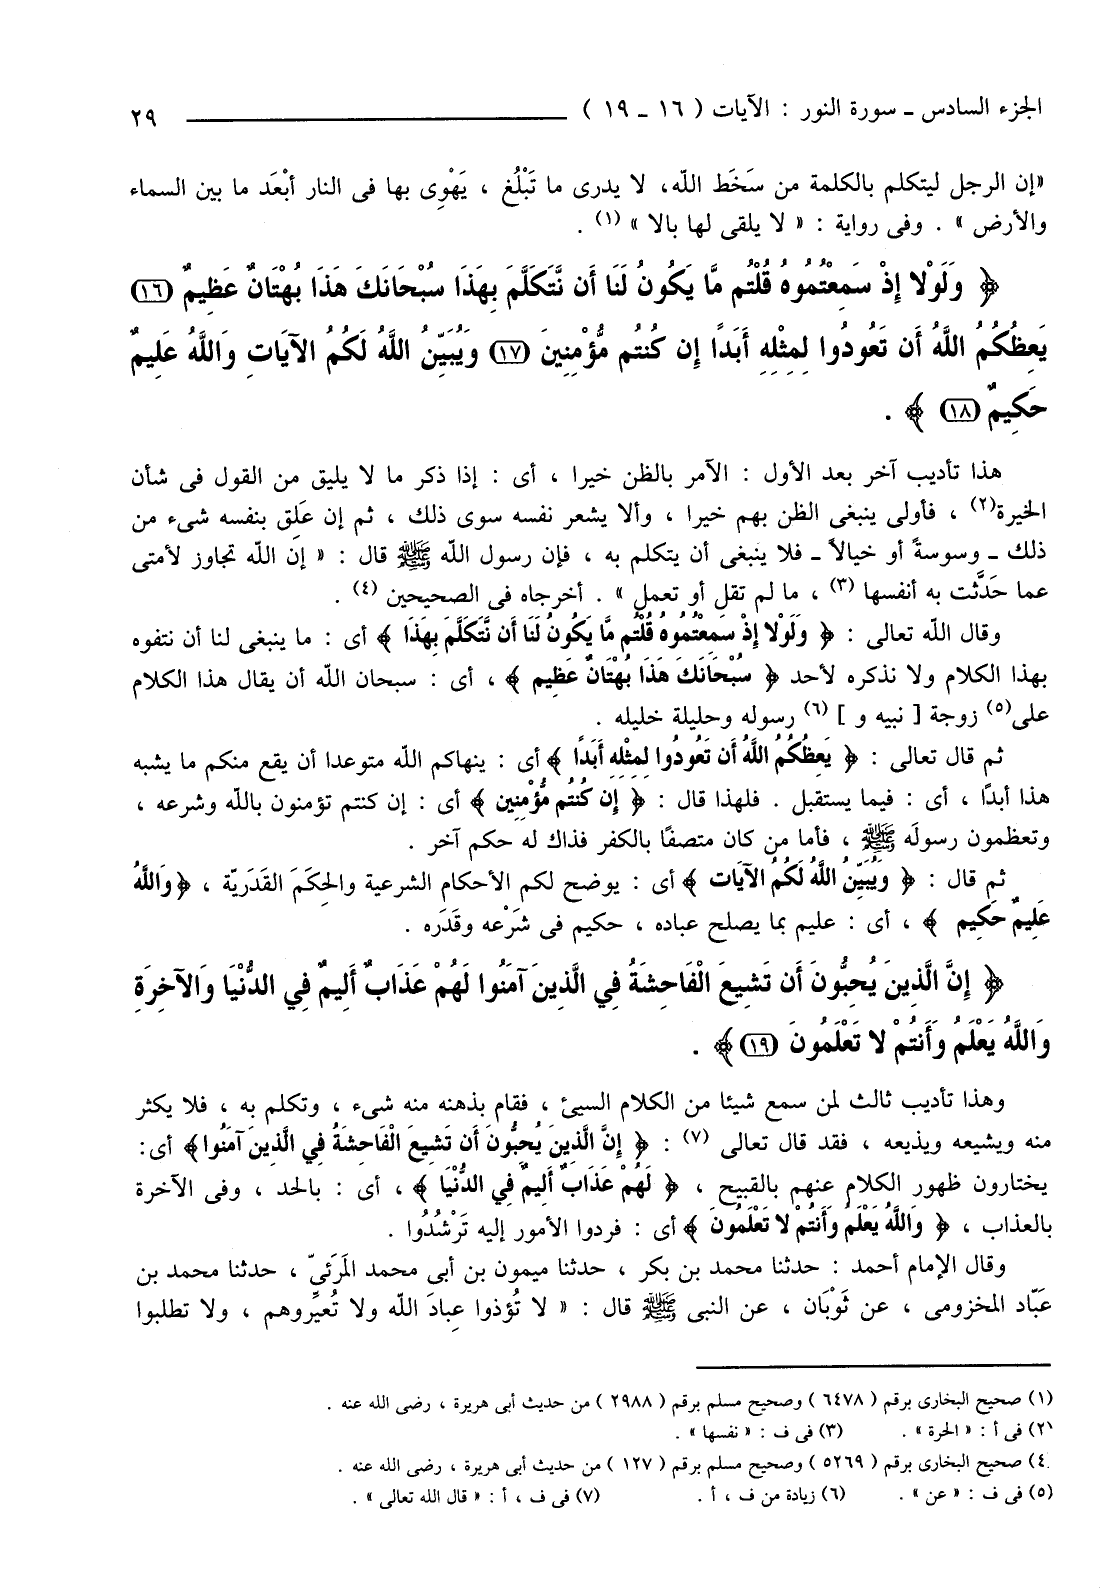 الجزء السادس ـ سورة النور : الآيات ( ١٦ ـ ١٩ ) ٢٩
«إن الرجل ليتكلم بالكلمة من سَخَط الله، لا يدرى ما تَبْلُغ ، يَهْوِى بها فى النار أبْعَد ما بين السماء
والأرض » . وفى رواية : « لا يلقى لها بالا » (١) .
﴿ وَلَوْلا إِذْ سَمِعْتُمُوهُ قُلْتُم مَّا يَكُونُ لَنَا أَن نَّتَكَلَّمَ بِهَذَا سُبْحَانَكَ هَذَا بُهْتَانٌ عَظِيمٌ (١٦)
يَعِظُكُمُ اللَّهُ أَن تَعُودُوا لِمِثْلِهِ أَبَدًا إِن كُنتُم مُّؤْمِنِينَ (١٧) وَيُبَيِّنُ اللَّهُ لَكُمُ الآيَاتِ وَاللَّهُ عَلِيمٌ
حَكِيمٌ (١٨) ﴾ .
هذا تأديب آخر بعد الأول : الآمر بالظن خيرا ، أى : إذا ذكر ما لا يليق من القول فى شأن
الخيرة(٢) ، فأولى ينبغى الظن بهم خيرا ، وألا يشعر نفسه سوى ذلك ، ثم إن عَلِق بنفسه شىء من
ذلك ـ وسوسةً أو خيالاً ـ فلا ينبغى أن يتكلم به ، فإن رسول الله ﷺ قال : « إن الله تجاوز لأمتى
عما حَدَّثت به أنفسها (٣) ، ما لم تقل أو تعمل » . أخرجاه فى الصحيحين (٤) .
وقال الله تعالى : ﴿ وَلَوْلا إِذْ سَمِعْتُمُوهُ قُلْتُم مَّا يَكُونُ لَنَا أَن نَّتَكَلَّمَ بِهَذَا ﴾ أى : ما ينبغى لنا أن نتفوه
بهذا الكلام ولا نذكره لأحد ﴿ سُبْحَانَكَ هَذَا بُهْتَانٌ عَظِيم ﴾ ، أى : سبحان الله أن يقال هذا الكلام
على(٥) زوجة [ نبيه و ] (٦) رسوله وحليلة خليله .
ثم قال تعالى : ﴿ يَعِظُكُمُ اللَّهُ أَن تَعُودُوا لِمِثْلِهِ أَبَدًا ﴾ أى : ينهاكم الله متوعدا أن يقع منكم ما يشبه
هذا أبدًا ، أى : فيما يستقبل . فلهذا قال : ﴿ إِن كُنتُم مُّؤْمِنِين ﴾ أى : إن كنتم تؤمنون بالله وشرعه ،
وتعظمون رسولَه ﷺ ، فأما من كان متصفًا بالكفر فذاك له حكم آخر .
ثم قال : ﴿ وَيُبَيِّنُ اللَّهُ لَكُمُ الآيَات ﴾ أى : يوضح لكم الأحكام الشرعية والحِكَمَ القَدَريّة ، ﴿وَاللَّهُ
عَلِيمٌ حَكِيم ﴾ ، أى : عليم بما يصلح عباده ، حكيم فى شَرْعه وقَدَره .
﴿ إِنَّ الَّذِينَ يُحِبُّونَ أَن تَشِيعَ الْفَاحِشَةُ فِي الَّذِينَ آمَنُوا لَهُمْ عَذَابٌ أَلِيمٌ فِي الدُّنْيَا وَالآخِرَةِ
وَاللَّهُ يَعْلَمُ وَأَنتُمْ لا تَعْلَمُونَ (١٩) ﴾ .
وهذا تأديب ثالث لمن سمع شيئا من الكلام السيئ ، فقام بذهنه منه شىء ، وتكلم به ، فلا يكثر
منه ويشيعه ويذيعه ، فقد قال تعالى (٧) : ﴿ إِنَّ الَّذِينَ يُحِبُّونَ أَن تَشِيعَ الْفَاحِشَةُ فِي الَّذِينَ آمَنُوا﴾ أى:
يختارون ظهور الكلام عنهم بالقبيح ، ﴿ لَهُمْ عَذَابٌ أَلِيمٌ فِي الدُّنْيَا ﴾ ، أى : بالحد ، وفى الآخرة
بالعذاب ، ﴿ وَاللَّهُ يَعْلَمُ وَأَنتُمْ لا تَعْلَمُونَ ﴾ أى : فردوا الأمور إليه تَرْشُدُوا .
وقال الإمام أحمد : حدثنا محمد بن بكر ، حدثنا ميمون بن أبى محمد المَرَئيّ ، حدثنا محمد بن
عَبّاد المخزومى ، عن ثَوْبَان ، عن النبى ﷺ قال : « لا تُؤذوا عِبادَ الله ولا تُعيِّروهم ، ولا تطلبوا
(١) صحيح البخارى برقم ( ٦٤٧٨ ) وصحيح مسلم برقم ( ٢٩٨٨ ) من حديث أبى هريرة ، رضى الله عنه .
(٢) فى أ : « الحرة » . (٣) فى ف : « نفسها » .
(٤) صحيح البخارى برقم ( ٥٢٦٩ ) وصحيح مسلم برقم ( ١٢٧ ) من حديث أبى هريرة ، رضى الله عنه .
(٥) فى ف : « عن » . (٦) زيادة من ف ، أ . (٧) فى ف ، أ : « قال الله تعالى » .